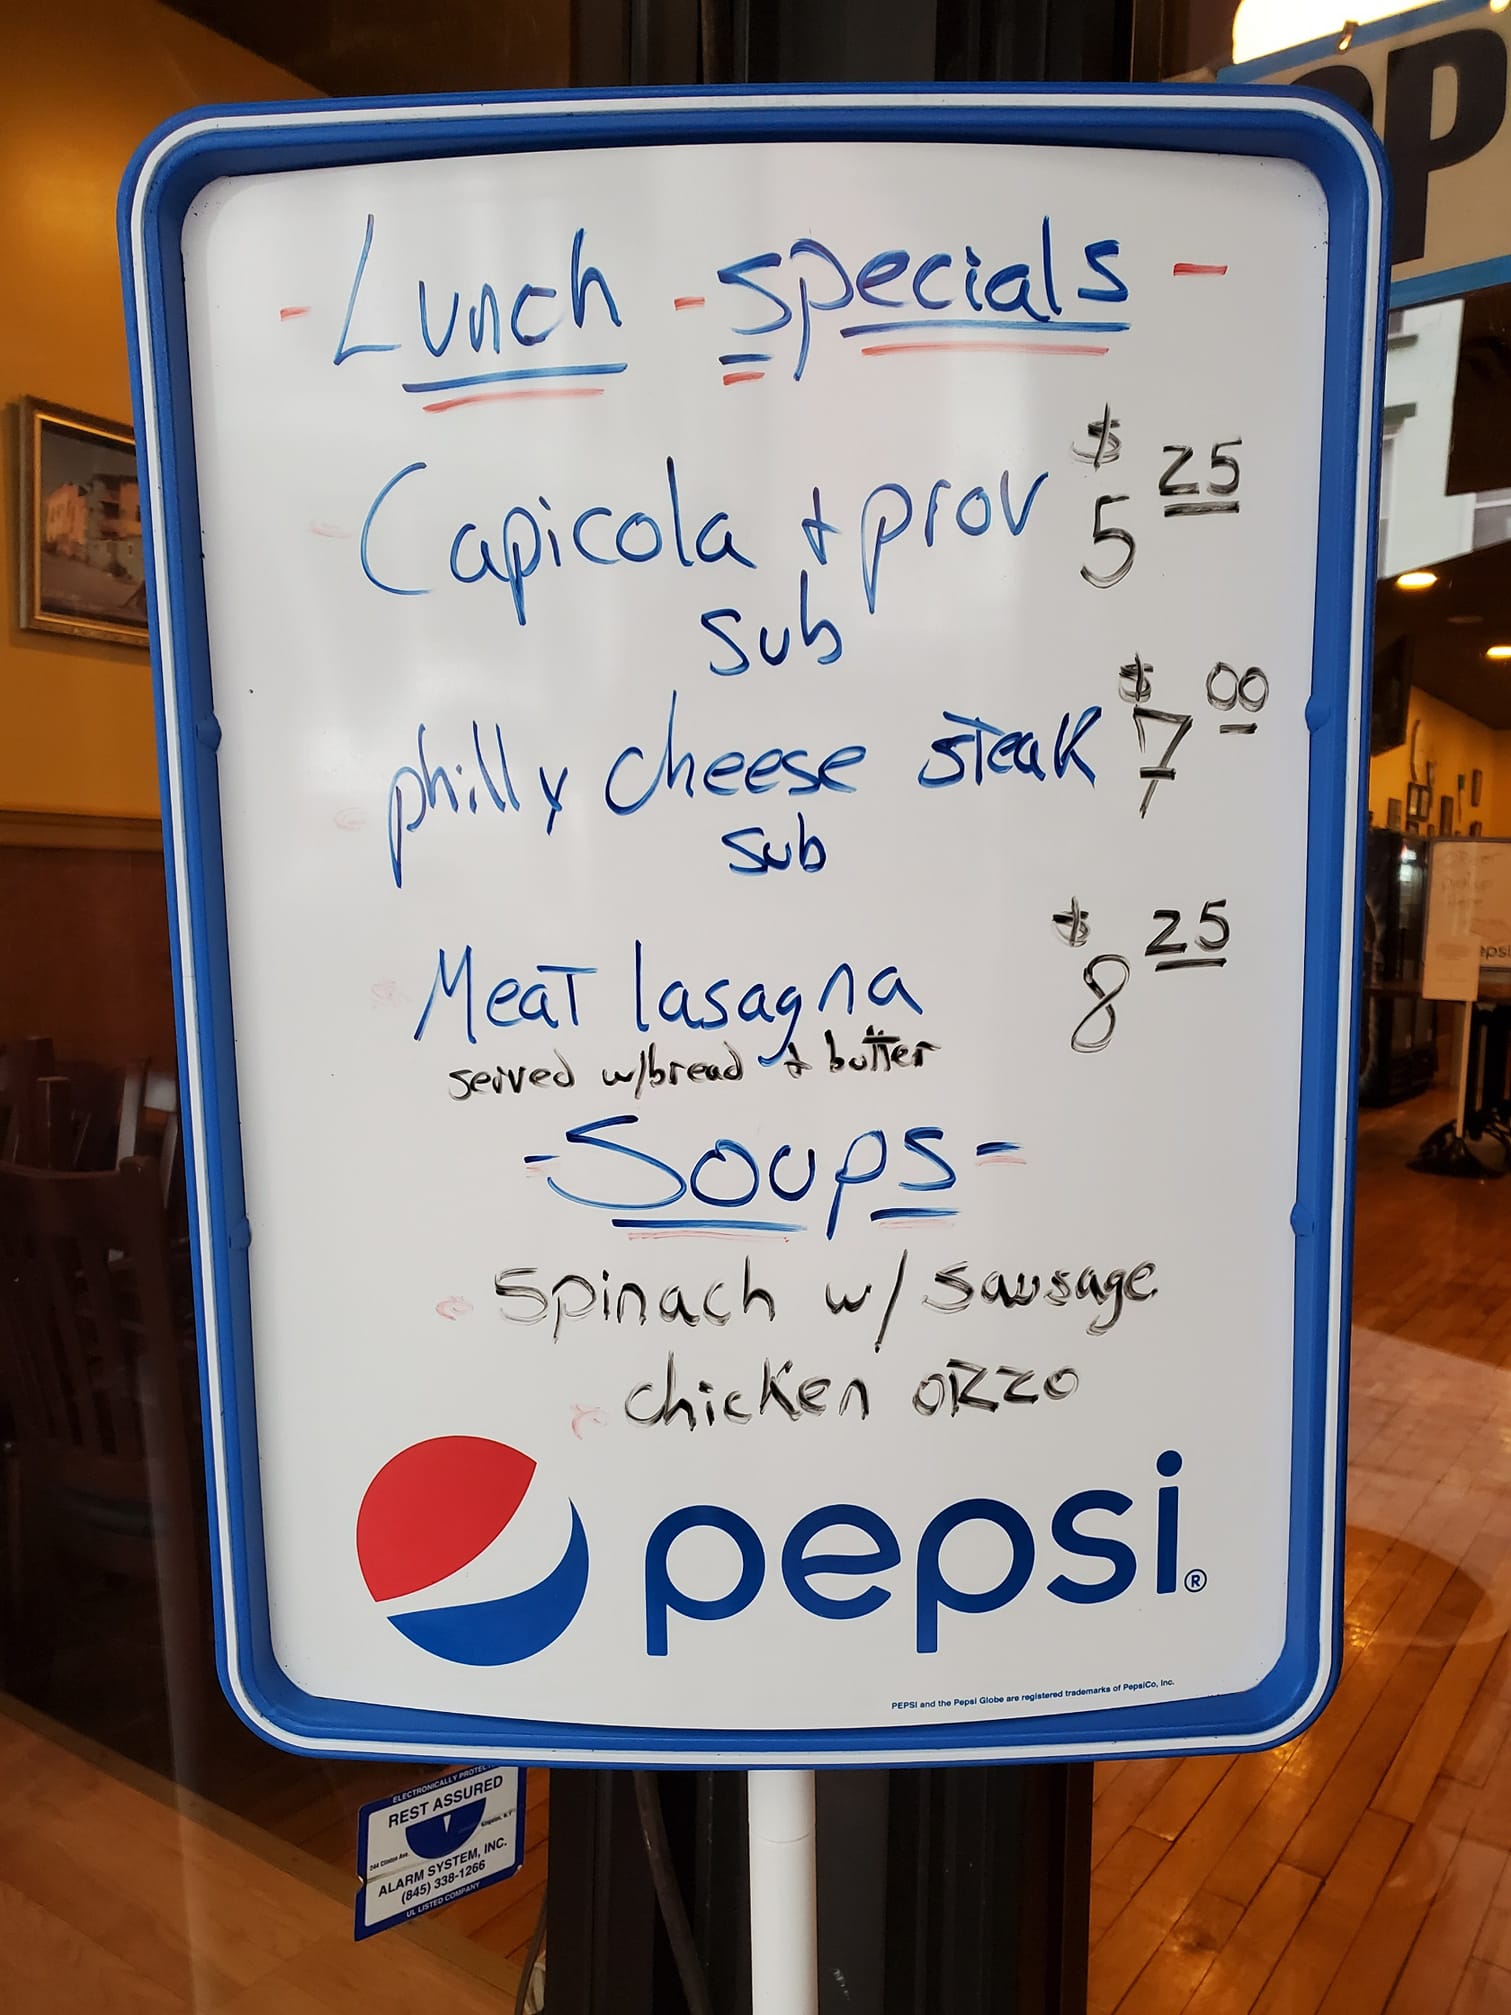 - Lunch - specials -
Capicola + prov $5 25
sub
philly cheese steak $7 00
sub
Meat lasagna $8 25
served w/bread + butter
- Soups -
Spinach w/ sausage
chicken orzzo
pepsi®
PEPSI and the Pepsi Globe are registered trademarks of PepsiCo, Inc.
REST ASSURED
244 Clinton Ave.
ALARM SYSTEM, INC.
(845) 338-1266
UL LISTED COMPANY
OP